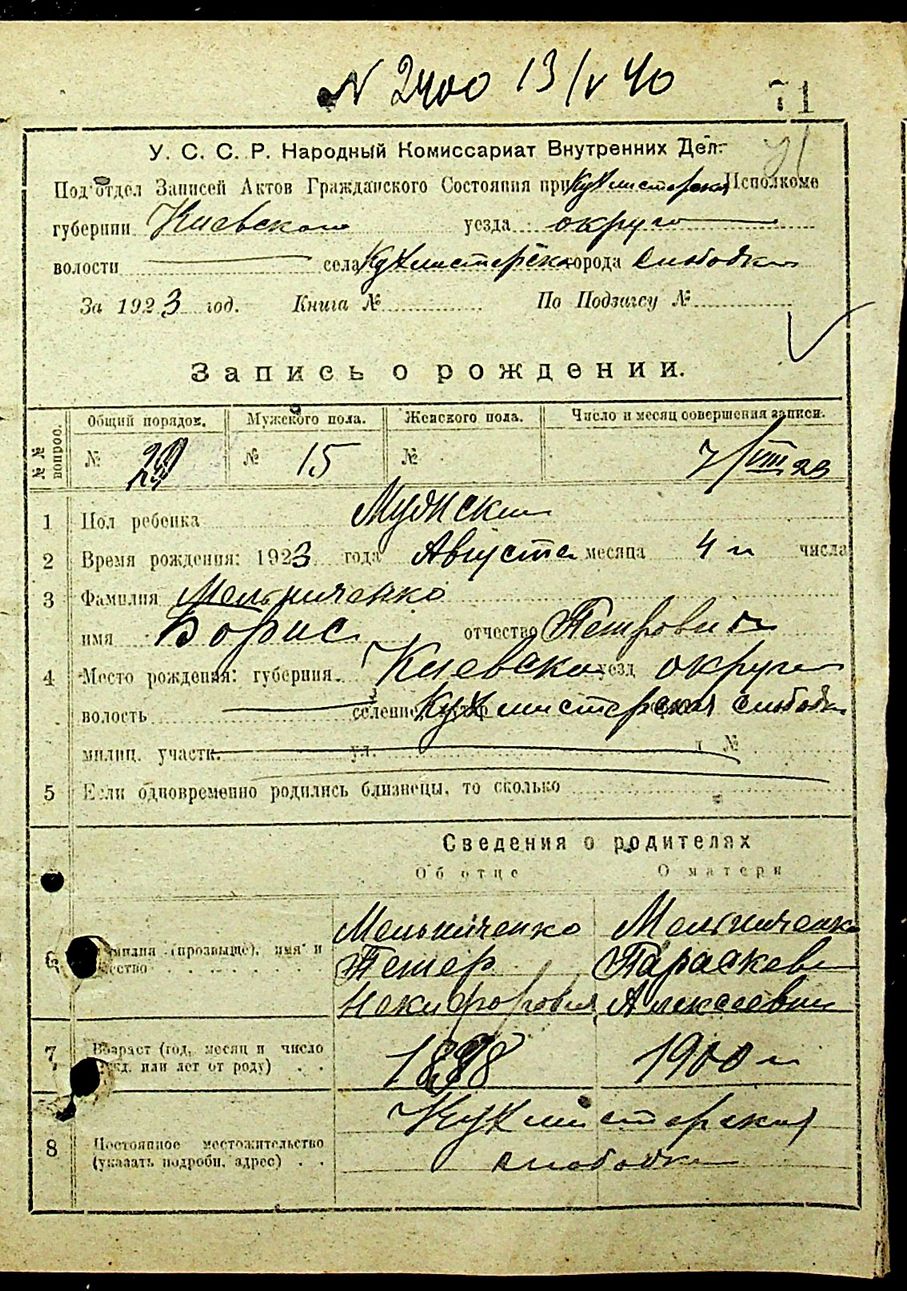 N 2400 13/V 40
71
71
У. С. С. Р. Народный Комиссариат Внутренних Дел.
Под'отдел Записей Актов Гражданского Состояния при Кухмистерск Исполкоме
губернии Киевской уезда округа
волости села Кухмистерск города слободки
За 1923 год. Книга № По Подзагсу №
Запись о рождении.
№№ вопрос. Общий порядок. Мужского пола. Женского пола. Число и месяц совершения записи.
№ 29 № 15 № 7/VIII 23
1 Пол ребенка Мужской
2 Время рождения: 1923 года Августа месяца 4 го числа
3 Фамилия Мельниченко
имя Борис отчество Петрович
4 Место рождения: губерния Киевской уезд округа
волость селение Кухмистерская слободка
милиц. участк. ул. №
5 Если одновременно родились близнецы, то сколько
Сведения о родителях
Об отце О матери
6 Фамилия (прозвище), имя и отчество Мельниченко Мельниченко
Петр Параскева
Никифорович Алексеевна
7 Возраст (год, месяц и число рожд. или лет от роду) 1898 1900 г
8 Постоянное местожительство (указать подробн. адрес) Кухмистерская
слободка